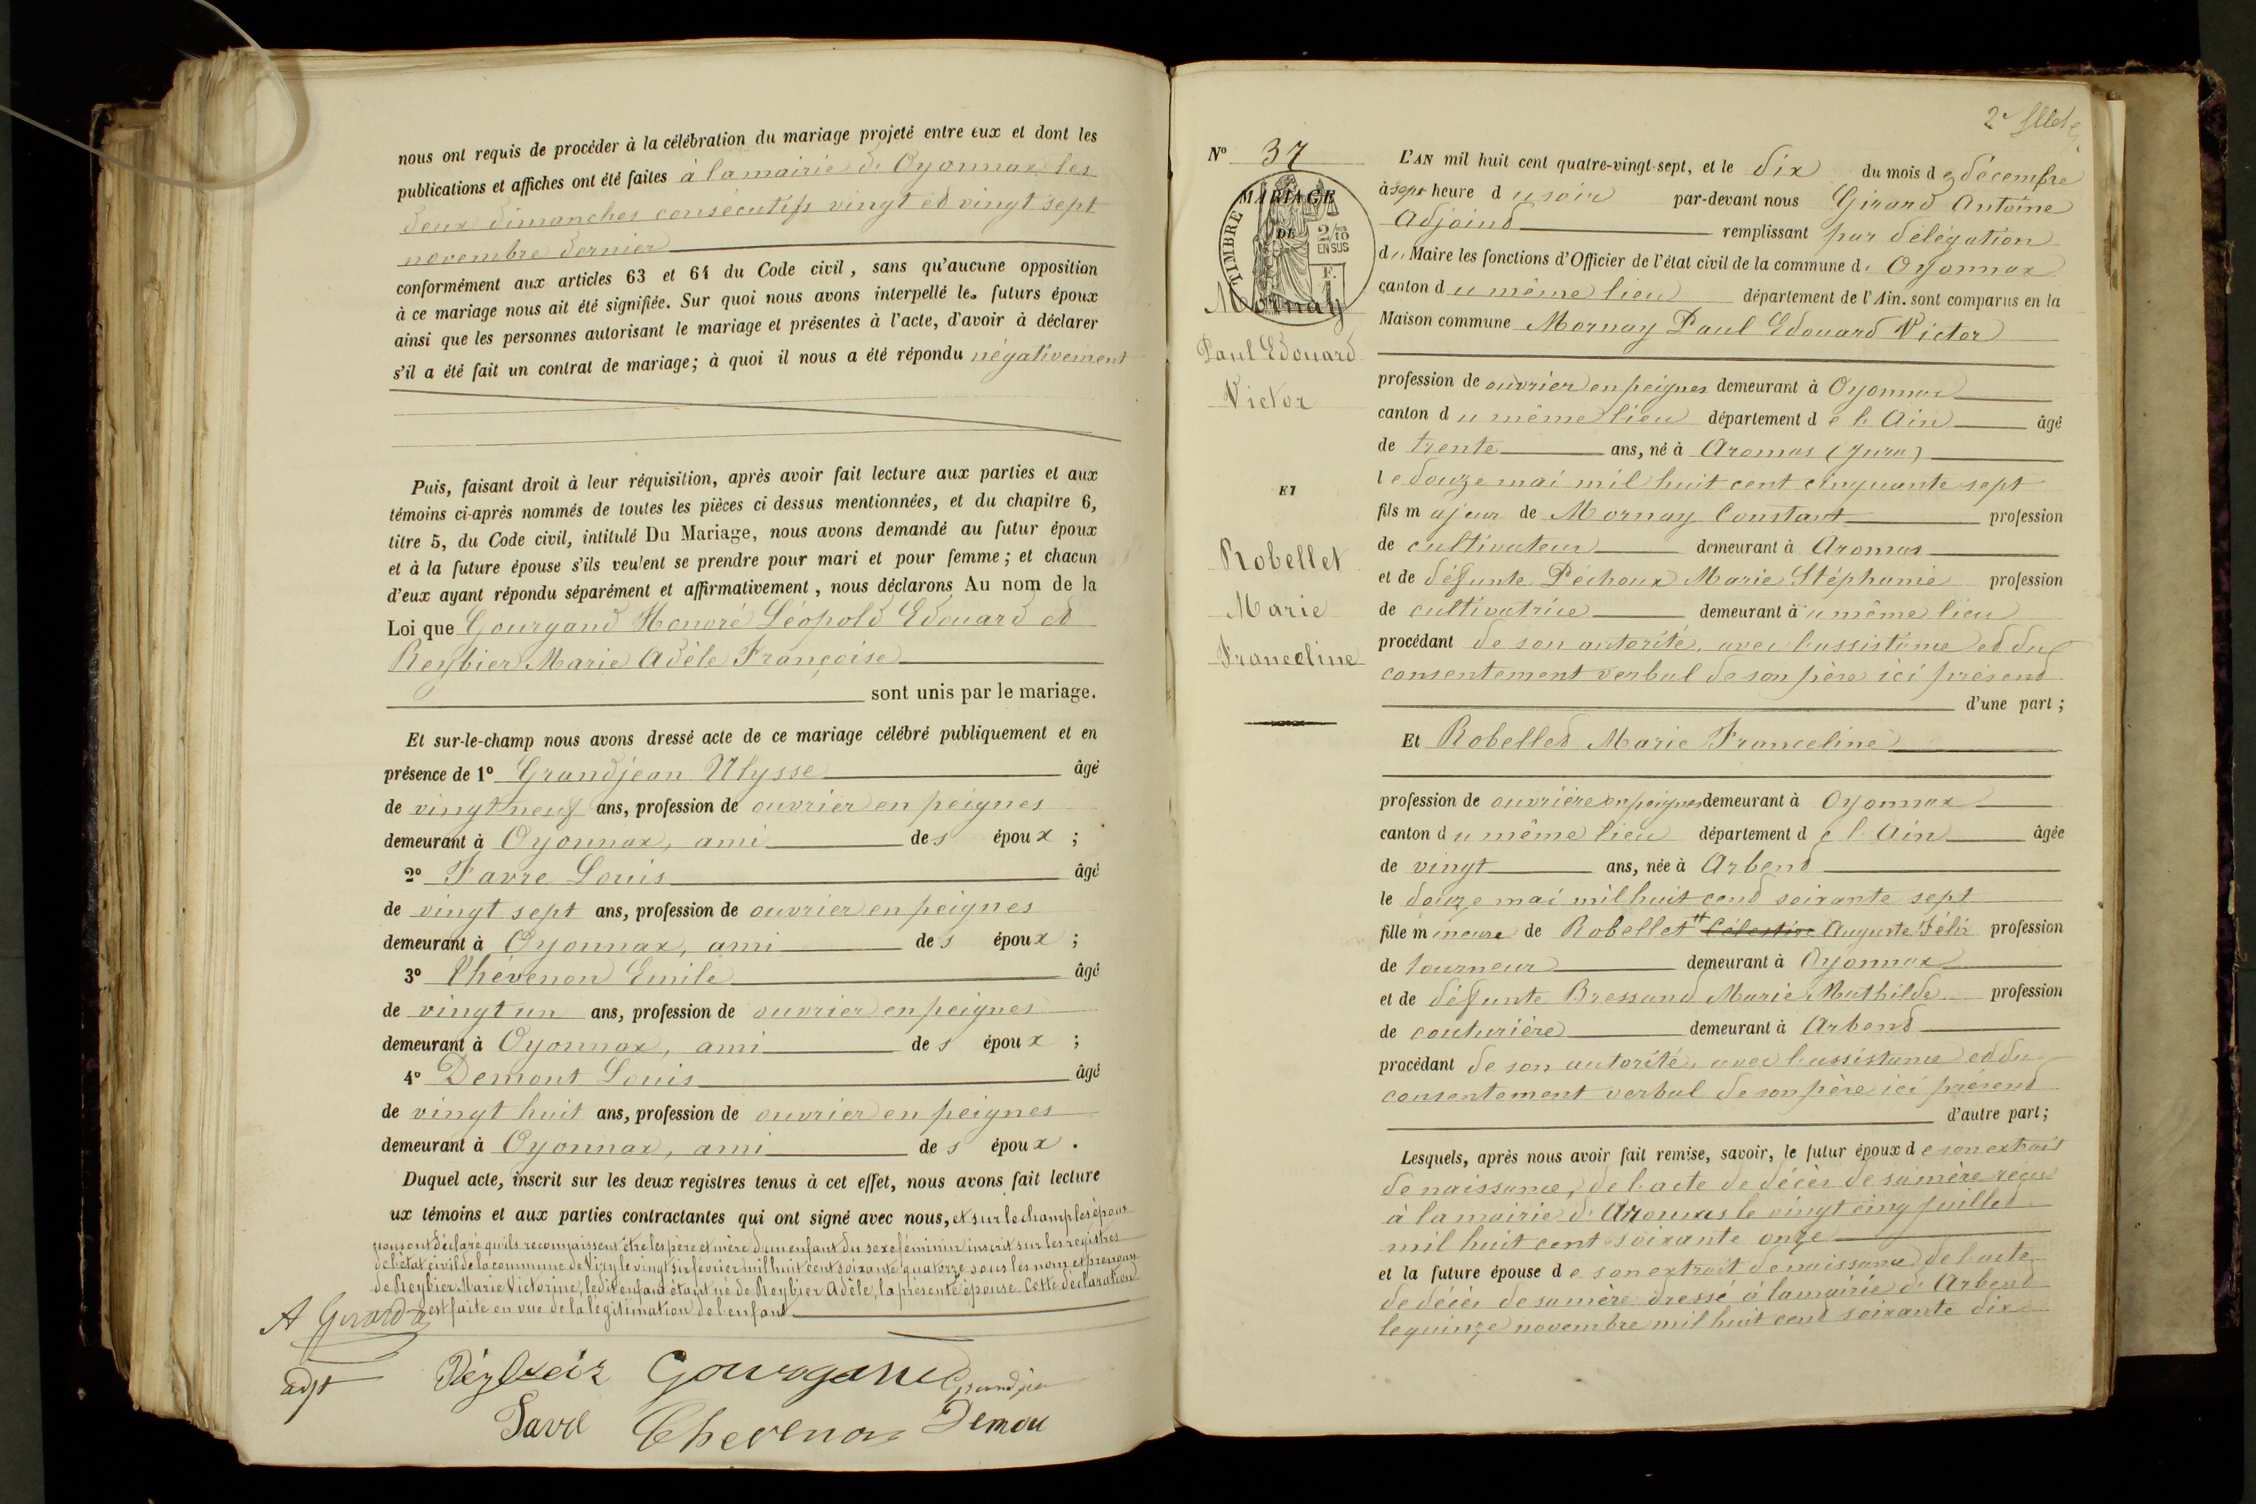 nous ont requis de procéder à la célébration du mariage projeté entre eux et dont les
publications et affiches ont été faites à la mairie d'Oyonnax les
deux dimanches consécutifs vingt et vingt sept
novembre dernier
conformément aux articles 63 et 64 du Code civil, sans qu'aucune opposition
à ce mariage nous ait été signifiée. Sur quoi nous avons interpellé les futurs époux
ainsi que les personnes autorisant le mariage et présentes à l'acte, d'avoir à déclarer
s'il a été fait un contrat de mariage; à quoi il nous a été répondu négativement
Puis, faisant droit à leur réquisition, après avoir fait lecture aux parties et aux
témoins ci-après nommés de toutes les pièces ci dessus mentionnées, et du chapitre 6,
titre 5, du Code civil, intitulé Du Mariage, nous avons demandé au futur époux
et à la future épouse s'ils veulent se prendre pour mari et pour femme; et chacun
d'eux ayant répondu séparément et affirmativement, nous déclarons Au nom de la
Loi que Gourgand Honoré Léopold Edouard et
Reybier Marie Adèle Françoise
sont unis par le mariage.
Et sur-le-champ nous avons dressé acte de ce mariage célébré publiquement et en
présence de 1° Grandjean Ulysse âgé
de vingt neuf ans, profession de ouvrier en peignes
demeurant à Oyonnax, ami des époux ;
2° Favre Louis âgé
de vingt sept ans, profession de ouvrier en peignes
demeurant à Oyonnax, ami des époux ;
3° Chévenon Emile âgé
de vingt un ans, profession de ouvrier en peignes
demeurant à Oyonnax, ami des époux ;
4° Demont Louis âgé
de vingt huit ans, profession de ouvrier en peignes
demeurant à Oyonnax, ami des époux.
Duquel acte, inscrit sur les deux registres tenus à cet effet, nous avons fait lecture
ux témoins et aux parties contractantes qui ont signé avec nous, et sur le champ les époux
nous ont déclaré qu'ils reconnaissent être les père et mère d'un enfant du sexe féminin inscrit sur les registres
de l'état civil de la commune de Viry le vingt six février mil huit cent soixante quatorze sous les nom et prénoms
de Reybier Marie Victorine, ledit enfant étant né de Reybier Adèle, la présente épouse. Cette déclaration
est faite en vue de la légitimation de l'enfant
A Girard
adjt
Reybier Gourgand Grandjean
Favre Chevenon Demon
2e
N° 37
TIMBRE
MARIAGE
DE
2/10
EN SUS
F.
1
Mornay
Paul Edouard
Victor
ET
Robellet
Marie
Franceline
L'AN mil huit cent quatre-vingt-sept, et le dix du mois de décembre
à sept heure du soir par-devant nous Girard Antoine
Adjoint remplissant par délégation
du Maire les fonctions d'Officier de l'état civil de la commune d'Oyonnax
canton du même lieu département de l'Ain. sont comparus en la
Maison commune Mornay Paul Edouard Victor
profession de ouvrier en peignes demeurant à Oyonnax
canton du même lieu département de l'Ain âgé
de trente ans, né à Aromas (Jura)
le douze mai mil huit cent cinquante sept
fils majeur de Mornay Constant profession
de cultivateur demeurant à Aromas
et de défunte Péchoux Marie Stéphanie profession
de cultivatrice demeurant au même lieu
procédant de son autorité, avec l'assistance et du
consentement verbal de son père ici présent
d'une part;
Et Robellet Marie Franceline
profession de ouvrière en peignes demeurant à Oyonnax
canton du même lieu département de l'Ain âgée
de vingt ans, née à Arbent
le douze mai mil huit cent soixante sept
fille mineure de Robellet Célestin Auguste Félix profession
de tourneur demeurant à Oyonnax
et de défunte Bressand Marie Mathilde profession
de couturière demeurant à Arbent
procédant de son autorité, avec l'assistance et du
consentement verbal de son père ici présent
d'autre part;
Lesquels, après nous avoir fait remise, savoir, le futur époux de son extrait
de naissance, de l'acte de décès de sa mère reçu
à la mairie d'Aromas le vingt cinq juillet
mil huit cent soixante onze
et la future épouse de son extrait de naissance de l'acte
de décès de sa mère dressé à la mairie d'Arbent
le quinze novembre mil huit cent soixante dix